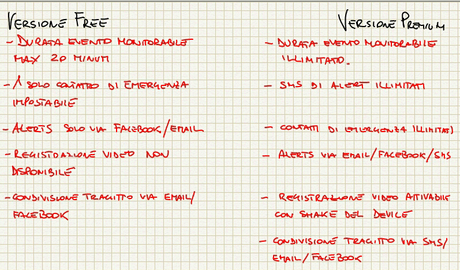 VERSIONE FREE
- DURATA EVENTO MONITORABILE
MAX 20 MINUTI
- 1 SOLO CONTATTO DI EMERGENZA
IMPOSTABILE
- ALERTS SOLO VIA FACEBOOK/EMAIL
- REGISTRAZIONE VIDEO NON
DISPONIBILE
- CONDIVISIONE TRAGITTO VIA EMAIL/
FACEBOOK
VERSIONE PREMIUM
- DURATA EVENTO MONITORABILE
ILLIMITATO.
- SMS DI ALERT ILLIMITATI
- CONTATTI DI EMERGENZA ILLIMITATI
- ALERTS VIA EMAIL/FACEBOOK/SMS
- REGISTRAZIONE VIDEO ATTIVABILE
CON SHAKE DEL DEVICE
- CONDIVISIONE TRAGITTO VIA SMS/
EMAIL/FACEBOOK